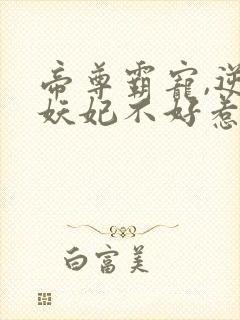 帝尊霸宠,逆
妖妃不好惹
白富美